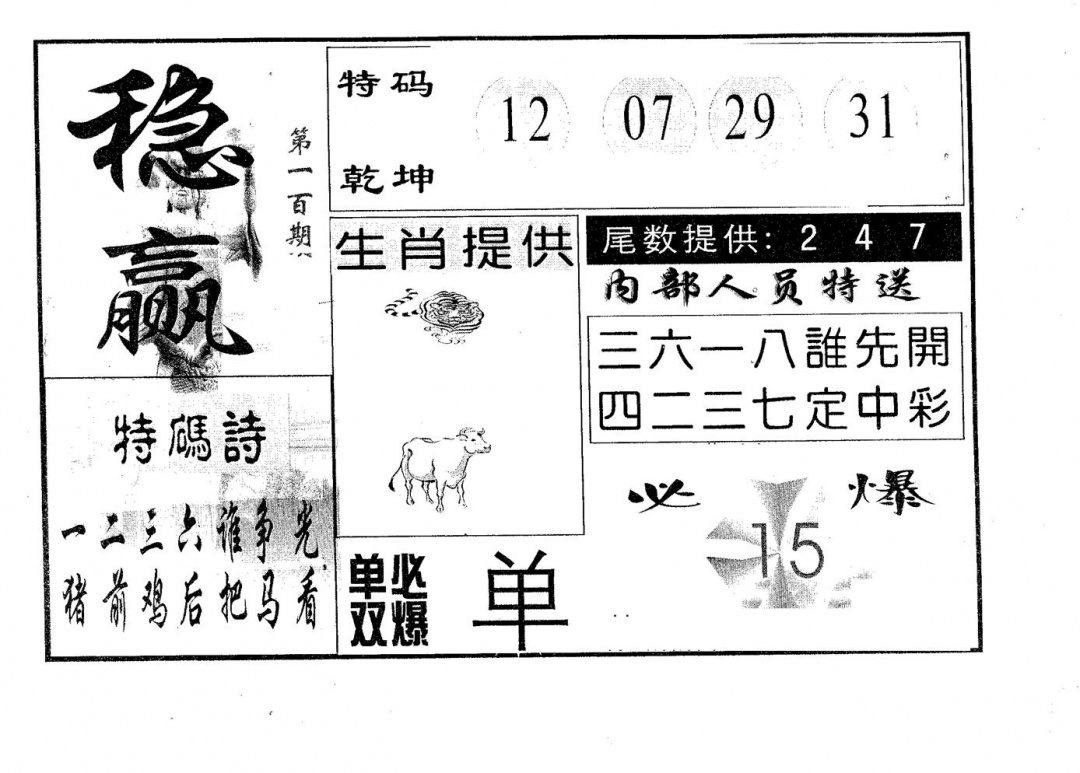 稳赢
第一百期
特码
乾坤
12 07 29 31
生肖提供
尾数提供: 2 4 7
内部人员特送
三六一八誰先開
四二三七定中彩
特碼詩
一二三六谁争光
猪前鸡后把马看
单双必爆
单
必爆
15